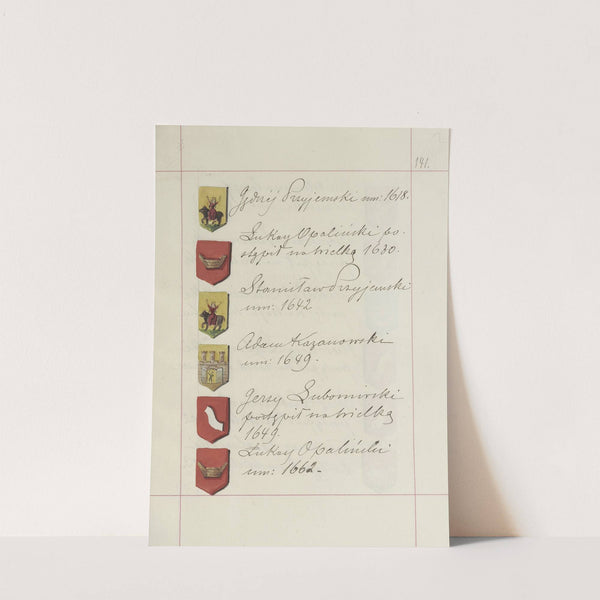 191.
Jędrzéj Przyjemski um: 1618.
Łukasz Opaliński po-
stąpił na wielką 1630.
Stanisław Przyjemski
um: 1642
Adam Kazanowski
um: 1649.
Jerzy Lubomirski
postąpił na wielką
1649.
Łukasz Opaliński
um: 1662.